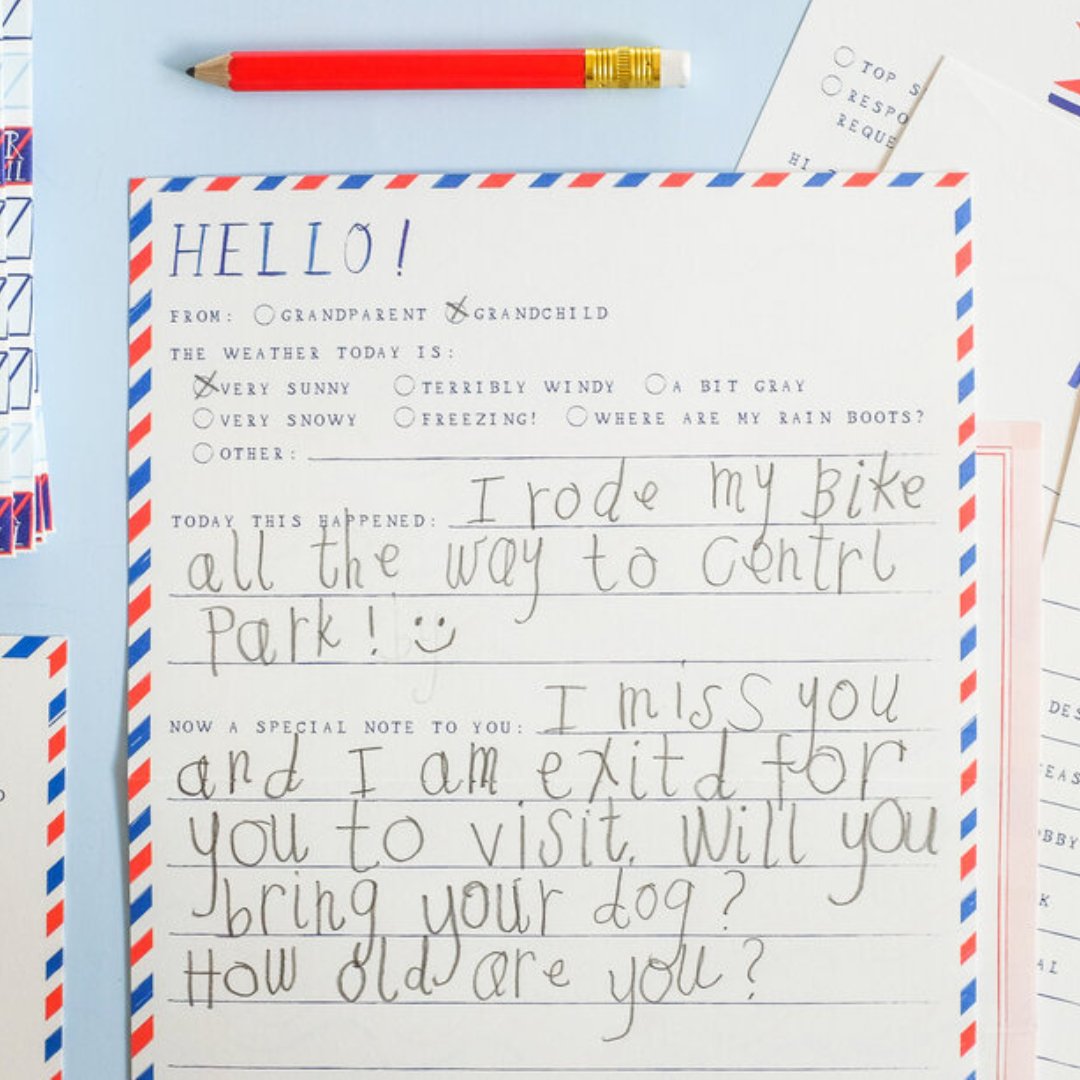 HELLO!
FROM: GRANDPARENT GRANDCHILD
THE WEATHER TODAY IS:
VERY SUNNY TERRIBLY WINDY A BIT GRAY
VERY SNOWY FREEZING! WHERE ARE MY RAIN BOOTS?
OTHER:
TODAY THIS HAPPENED: I rode my Bike
all the way to Centrl
Park! :)
NOW A SPECIAL NOTE TO YOU: I miss you
and I am exitd for
you to visit. Will you
bring your dog?
How old are you?
TOP
HI